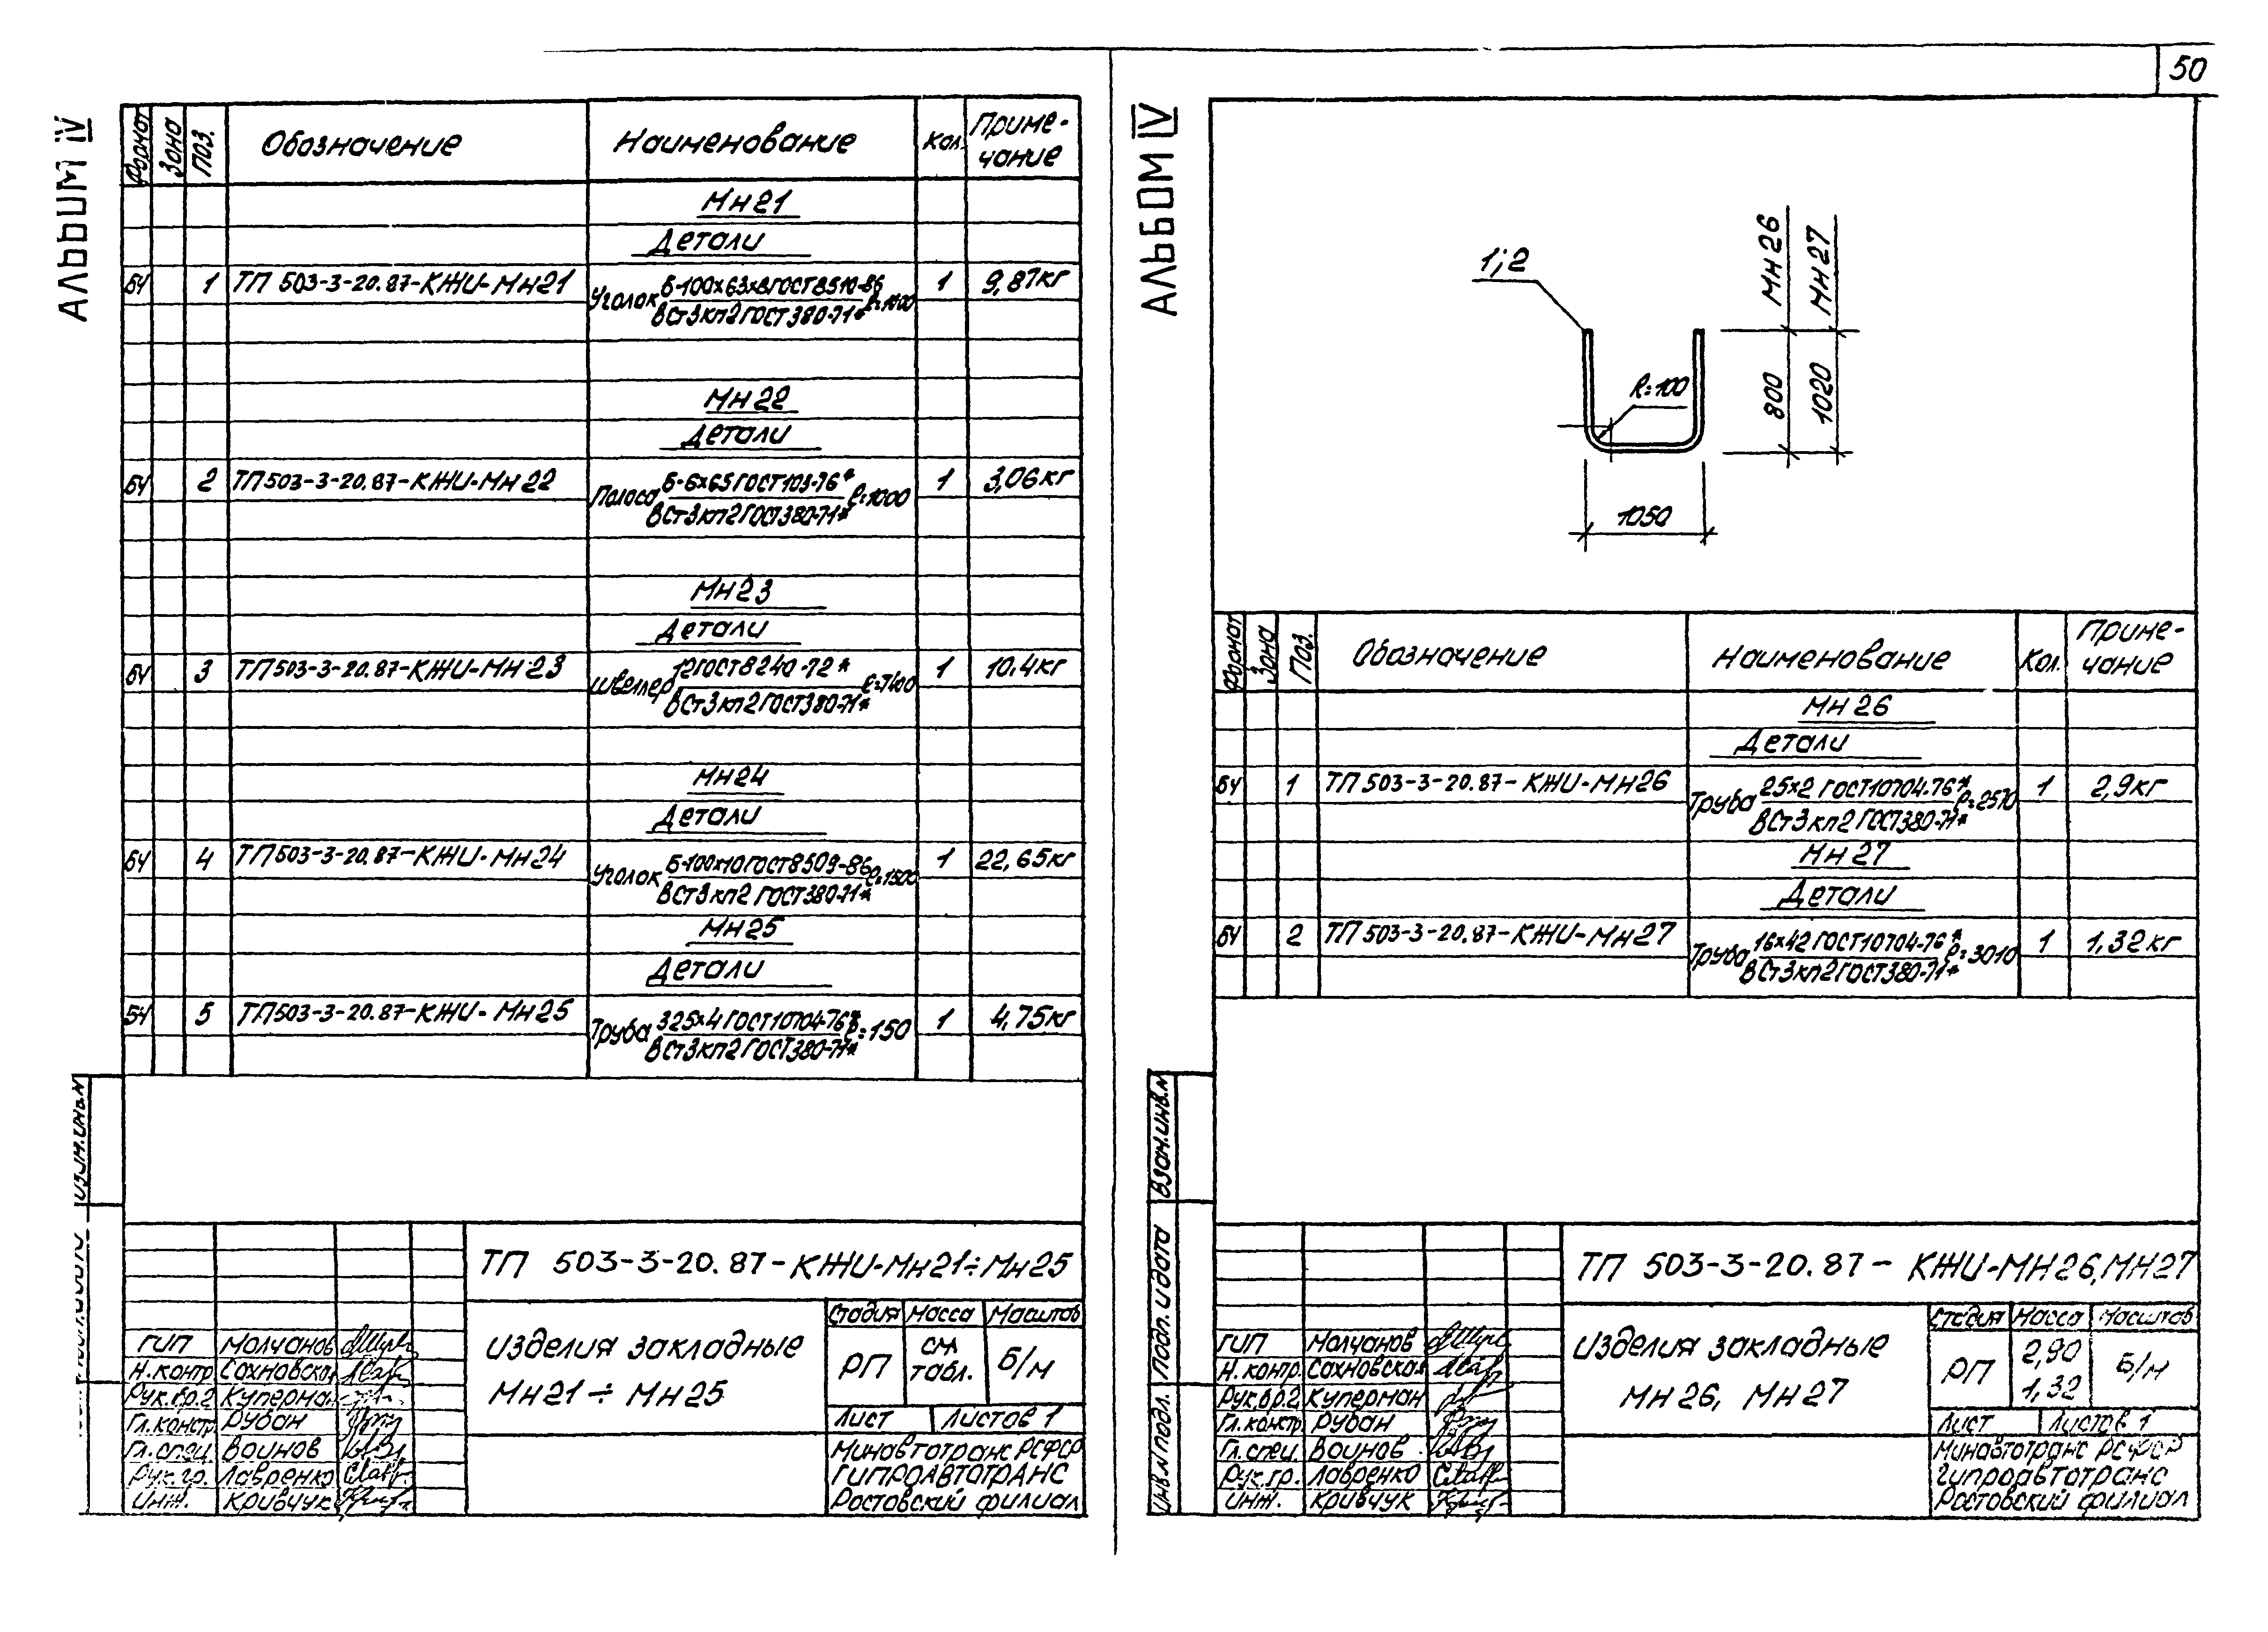 50
АЛЬБОМ IV
Формат Зона Поз. Обозначение Наименование Кол. Приме-
чание
Мн21
Детали
БЧ 1 ТП 503-3-20.87-КЖИ-Мн21 Уголок Б-100х63х8 ГОСТ 8510-86 ℓ=1000 1 9,87кг
ВСт3кп2 ГОСТ 380-71*
Мн22
Детали
БЧ 2 ТП 503-3-20.87-КЖИ-Мн22 Полоса Б-6х65 ГОСТ 103-76* ℓ=1000 1 3,06кг
ВСт3кп2 ГОСТ 380-71*
Мн23
Детали
БЧ 3 ТП 503-3-20.87-КЖИ-Мн23 Швеллер 12 ГОСТ 8240-72* 1 10,4кг
ВСт3кп2 ГОСТ 380-71*
Мн24
Детали
БЧ 4 ТП 503-3-20.87-КЖИ-Мн24 Уголок Б-100х10 ГОСТ 8509-86 ℓ=1500 1 22,65кг
ВСт3кп2 ГОСТ 380-71*
Мн25
Детали
БЧ 5 ТП 503-3-20.87-КЖИ-Мн25 Труба 325х4 ГОСТ 10704-76* ℓ=150 1 4,75кг
ВСт3кп2 ГОСТ 380-71*
Взам.инв.N
ТП 503-3-20.87-КЖИ-Мн21÷Мн25
Изделия закладные
Мн21 ÷ Мн25
Стадия Масса Масштаб
РП см. табл. Б/м
Лист Листов 1
ГИП Молчанов
Н.контр Сахновская
Рук.бр.2 Куперман
Гл.констр. Рубан
Гл.спец. Воинов
Рук.гр. Лавренко
Инж. Кривчук
Минавтотранс РСФСР
ГИПРОАВТОТРАНС
Ростовский филиал
АЛЬБОМ IV
1; 2
R=100
Мн26
Мн27
800
1020
1050
Формат Зона Поз. Обозначение Наименование Кол. Приме-
чание
Мн26
Детали
БЧ 1 ТП 503-3-20.87-КЖИ-Мн26 Труба 25х2 ГОСТ 10704-76* ℓ=2570 1 2,9кг
ВСт3кп2 ГОСТ 380-71*
Мн27
Детали
БЧ 2 ТП 503-3-20.87-КЖИ-Мн27 Труба 16х42 ГОСТ 10704-76* ℓ=3010 1 1,32кг
ВСт3кп2 ГОСТ 380-71*
Взам.инв.N
Подп. и дата
Инв.N подл.
ТП 503-3-20.87-КЖИ-Мн26,Мн27
Изделия закладные
Мн26, Мн27
Стадия Масса Масштаб
РП 2,90 Б/м
1,32
Лист Листов 1
ГИП Молчанов
Н.контр. Сахновская
Рук.бр.2 Куперман
Гл.констр. Рубан
Гл.спец. Воинов
Рук.гр. Лавренко
Инж. Кривчук
Минавтотранс РСФСР
Гипроавтотранс
Ростовский филиал